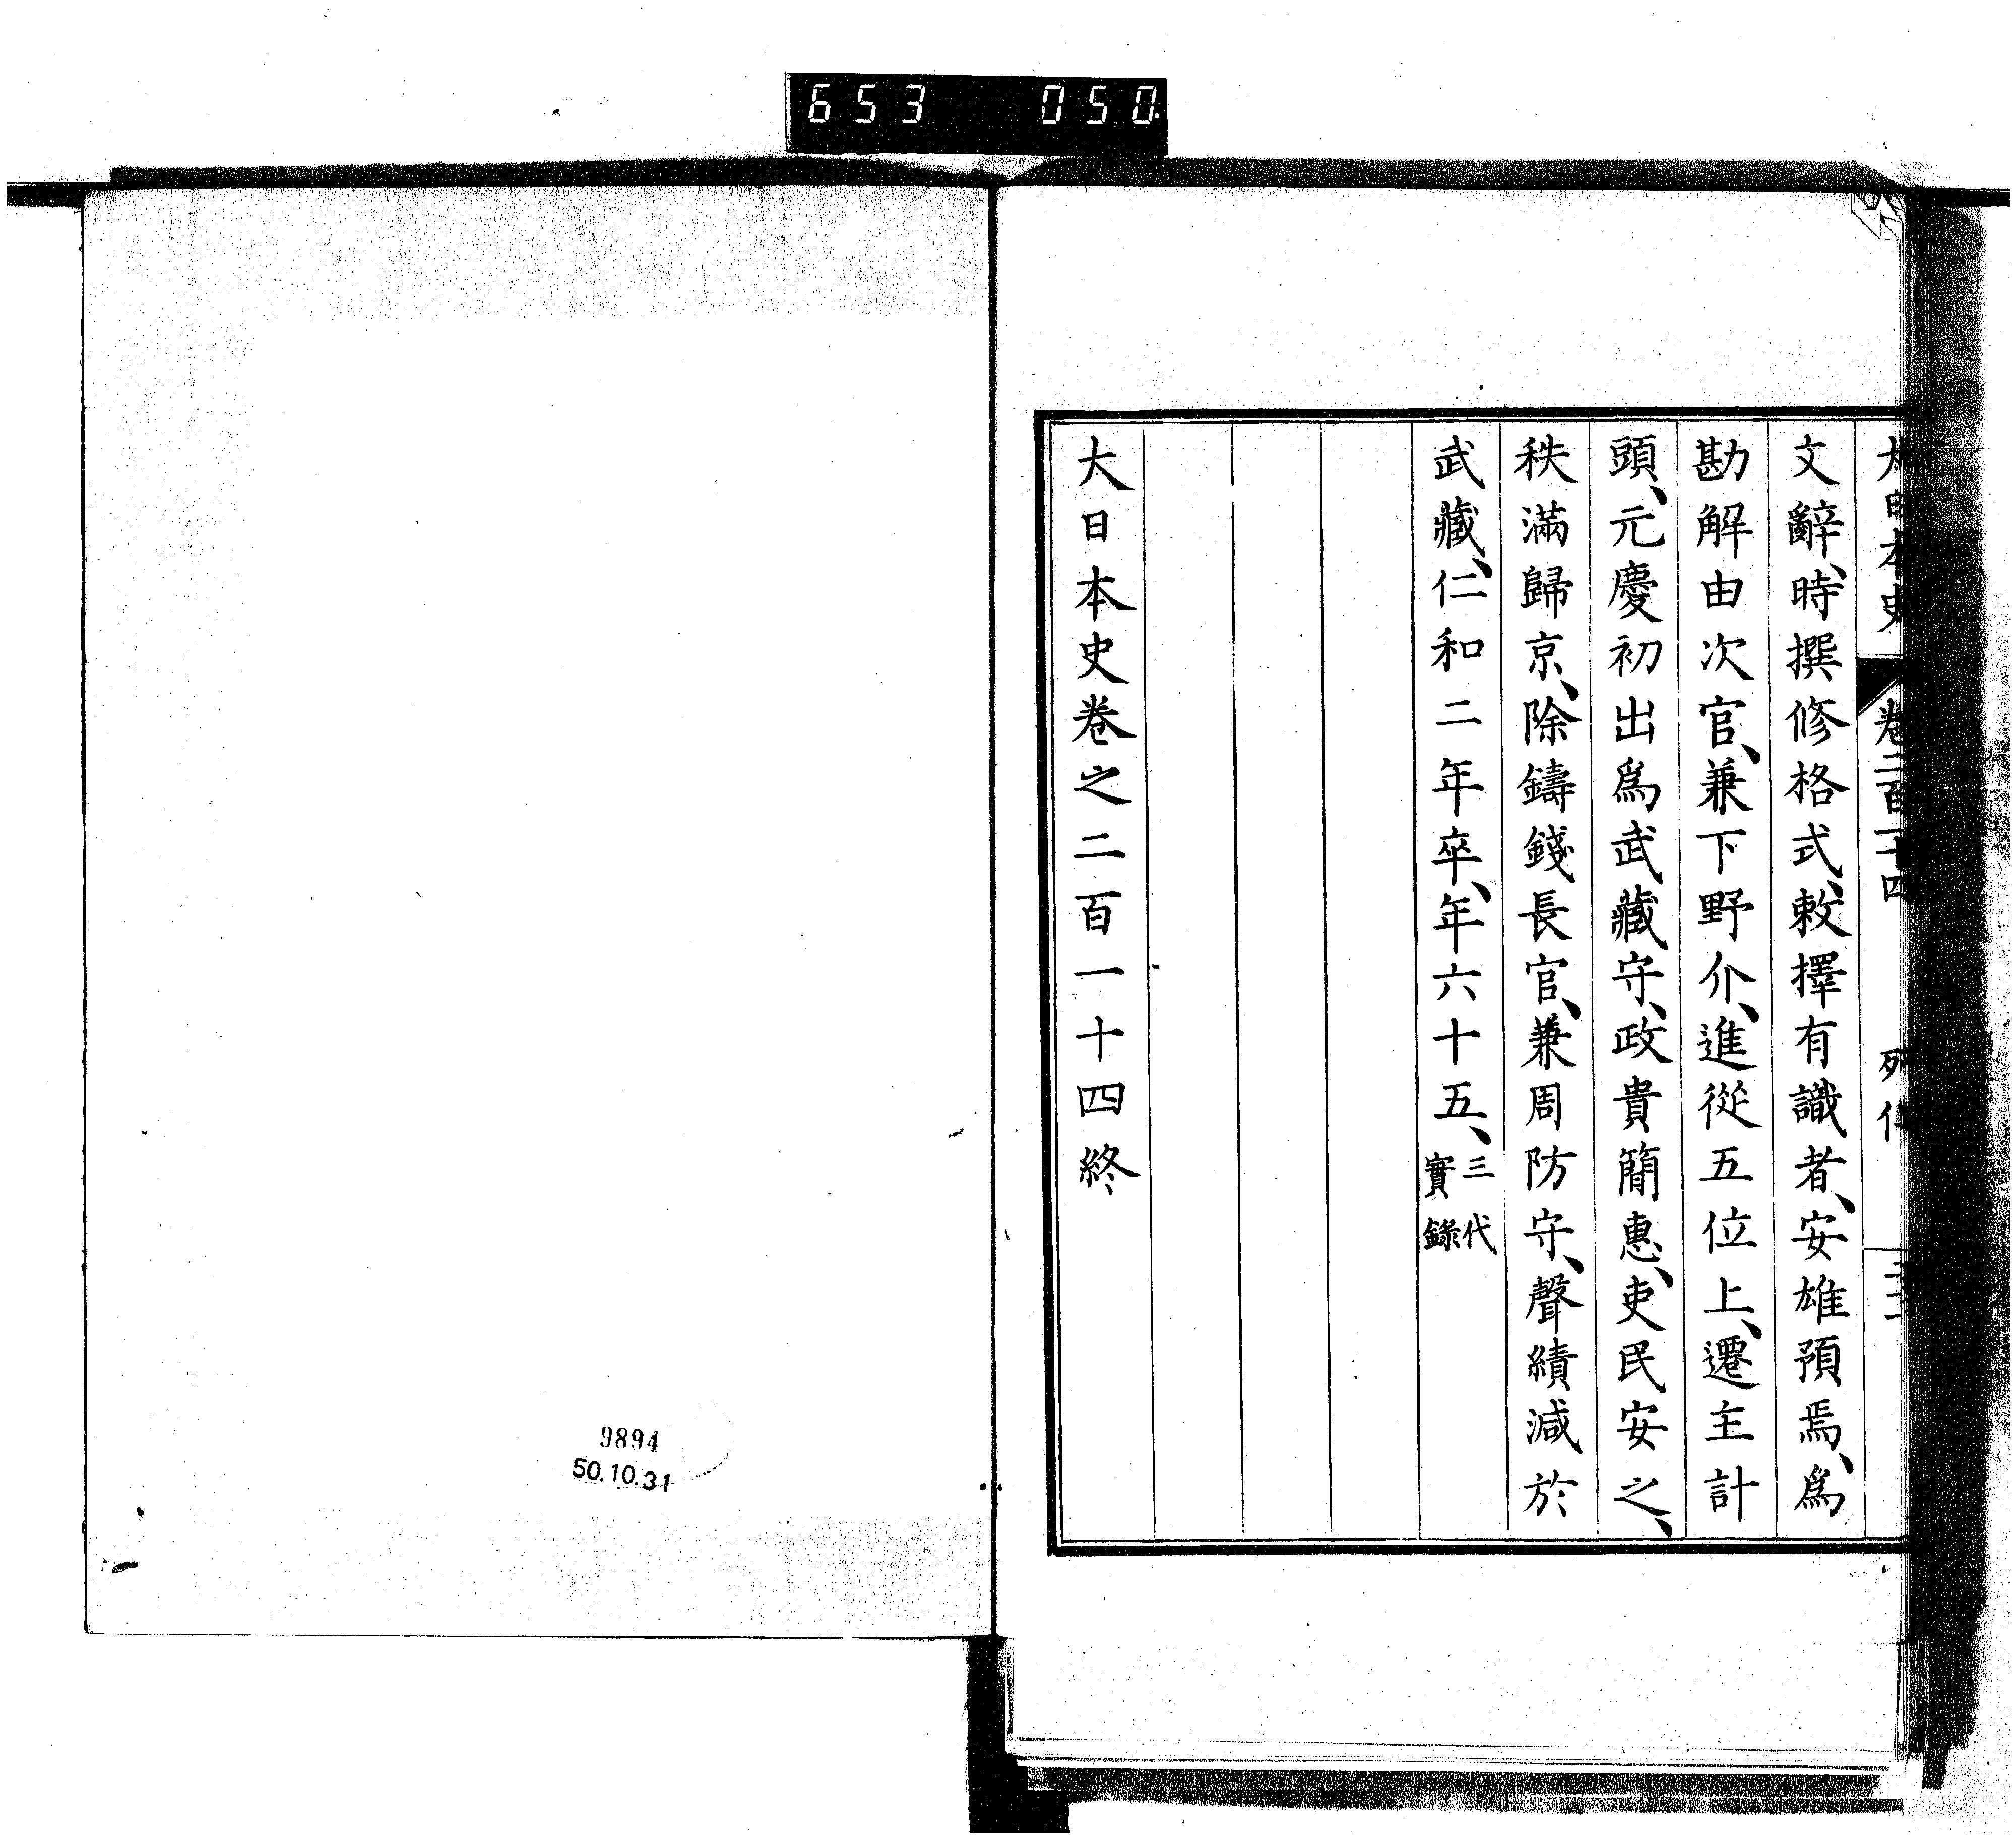 653 050
大日本史 卷二百一十四 列傳
文辭、時撰修格式、敕擇有識者、安雄預焉、爲
勘解由次官、兼下野介、進從五位上、遷主計
頭、元慶初出爲武藏守、政貴簡惠、吏民安之、
秩滿歸京、除鑄錢長官、兼周防守、聲績減於
武藏、仁和二年卒、年六十五、三代實錄
大日本史卷之二百一十四終
9894
50.10.31